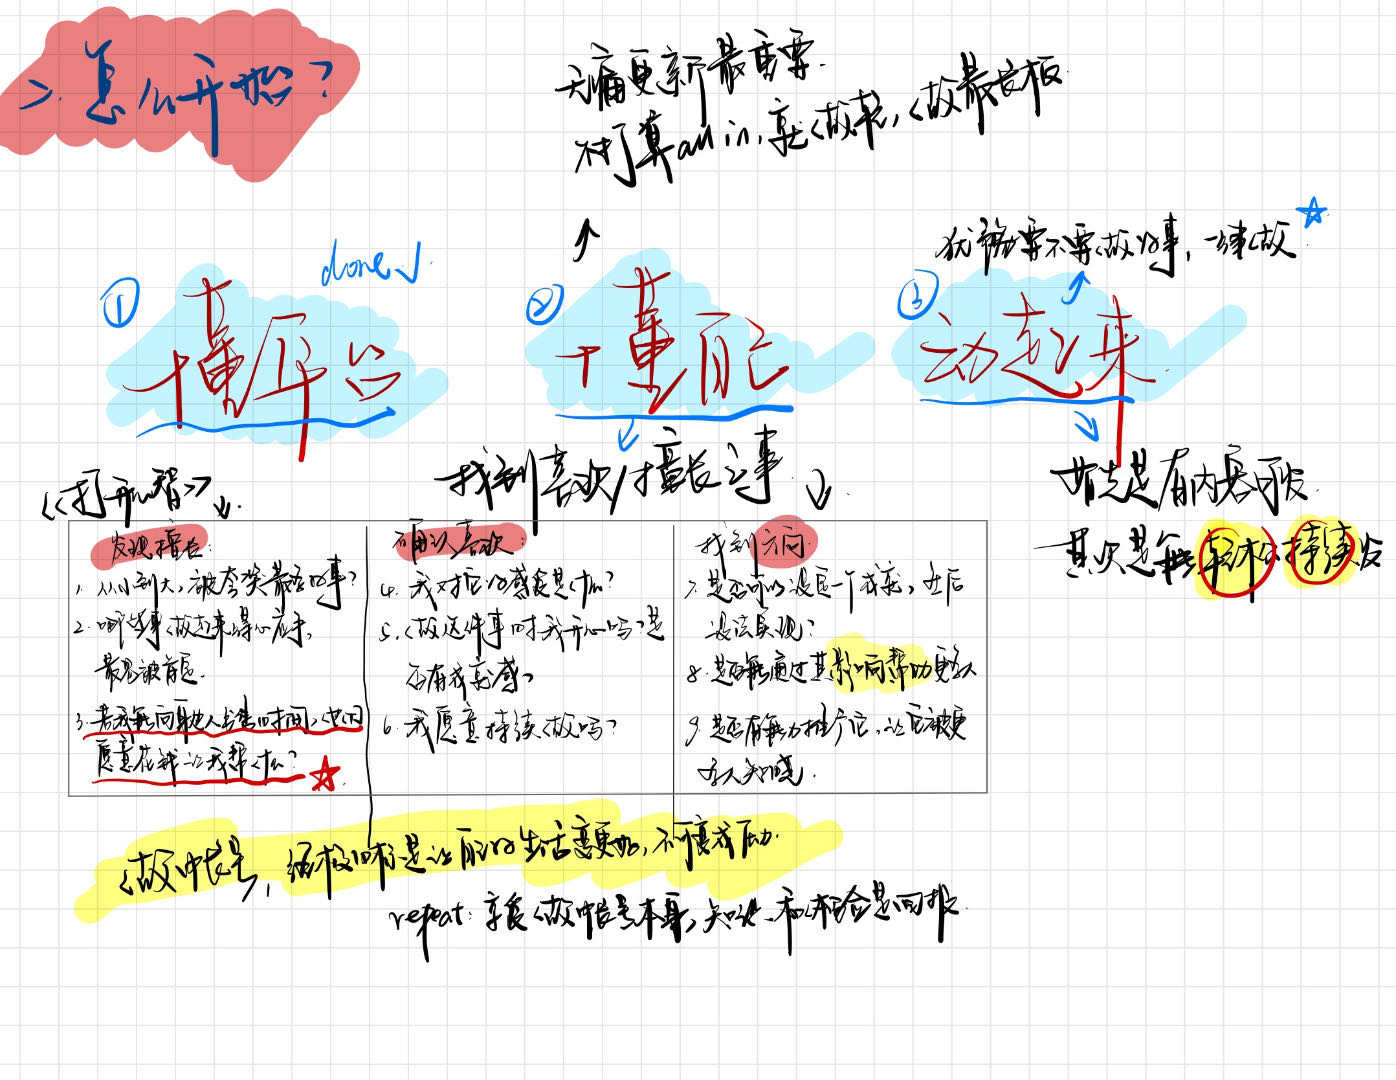 二.怎么开始?
无痛更新最重要.
不打算all in,就做长,做最长板
① 懂平台
done✓
② 懂自己
③ 动起来
犹豫要不要做的事,一律做
《打开心智》
找到喜欢/擅长之事
首先是有内容可发
其次是能轻松持续发
发现擅长:
1. 从小到大,被夸奖最多的事?
2. 哪些事做起来得心应手,
最易被肯定.
3. 若我能向他人出售时间,他们
愿意花钱让我帮什么?
确认喜欢:
4. 我对它的感觉是什么?
5. 做这件事时我开心吗?是
否有成就感?
6. 我愿意持续做吗?
找到方向:
7. 是否可以设定一个成就,并后
设法实现?
8. 是否能通过其影响帮助更多人
9. 是否有能力推广它,让它被更
多人知晓.
做中长号,终极目标是让自己的生活变更好,不可变成压力.
repeat: 享受做中长号本身,知识和机会是回报.